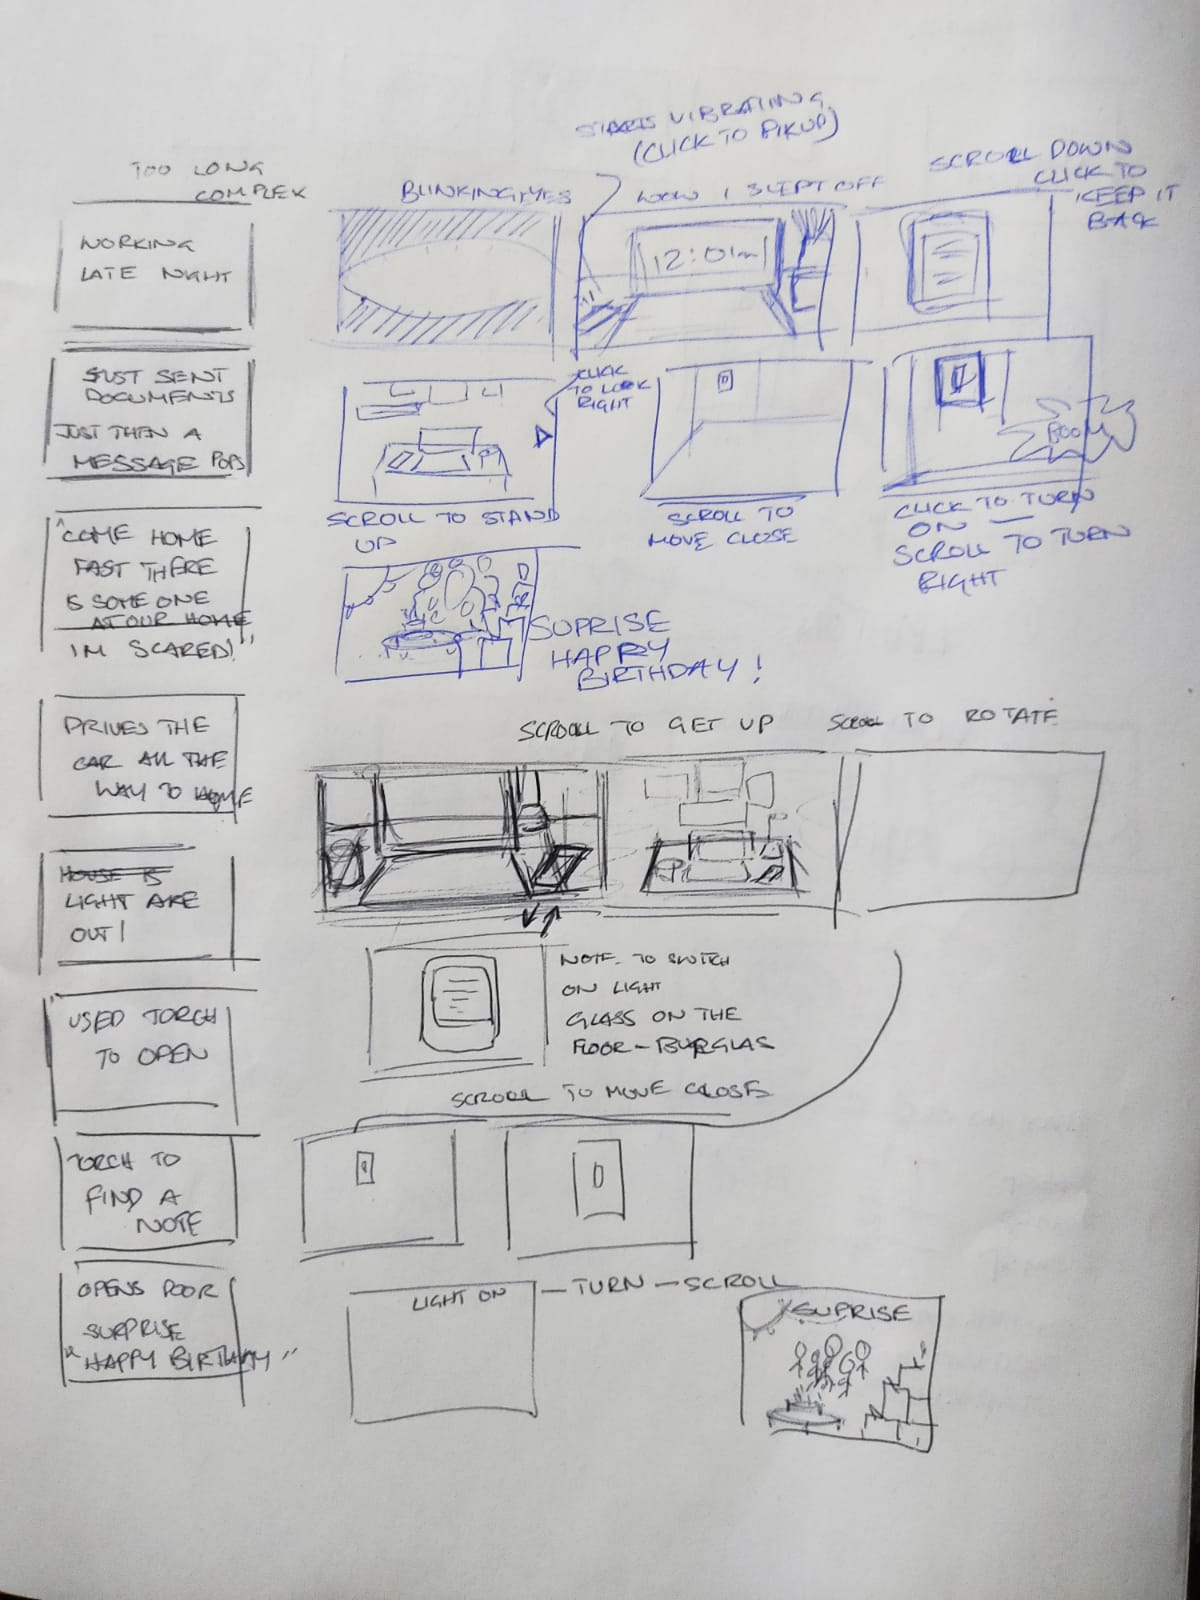 TOO LONG
COMPLEX
WORKING
LATE NIGHT
JUST SENT
DOCUMENTS
JUST THEN A
MESSAGE POPS
"COME HOME
FAST THERE
IS SOMEONE
AT OUR HOME
I'M SCARED!"
DRIVES THE
CAR ALL THE
WAY TO HOME
HOUSE IS
LIGHT ARE
OUT!
USED TORCH
TO OPEN
TORCH TO
FIND A
NOTE
OPENS DOOR
SURPRISE
"HAPPY BIRTHDAY"
STARTS VIBRATING
(CLICK TO PIKUP)
BLINKING EYES
WOW I SLEPT OFF
12:01am
SCROLL DOWN
CLICK TO
KEEP IT
BACK
CLICK
TO LOOK
RIGHT
SCROLL TO STAND
UP
SCROLL TO
MOVE CLOSE
BOOM
CLICK TO TURN
ON —
SCROLL TO TURN
RIGHT
SUPRISE
HAPPY
BIRTHDAY!
SCROOLL TO GET UP
SCROLL TO ROTATE
NOTE. TO SWITCH
ON LIGHT
GLASS ON THE
FLOOR - BURGLAS
SCROOLL TO MOVE CLOSE
LIGHT ON — TURN — SCROLL
SUPRISE